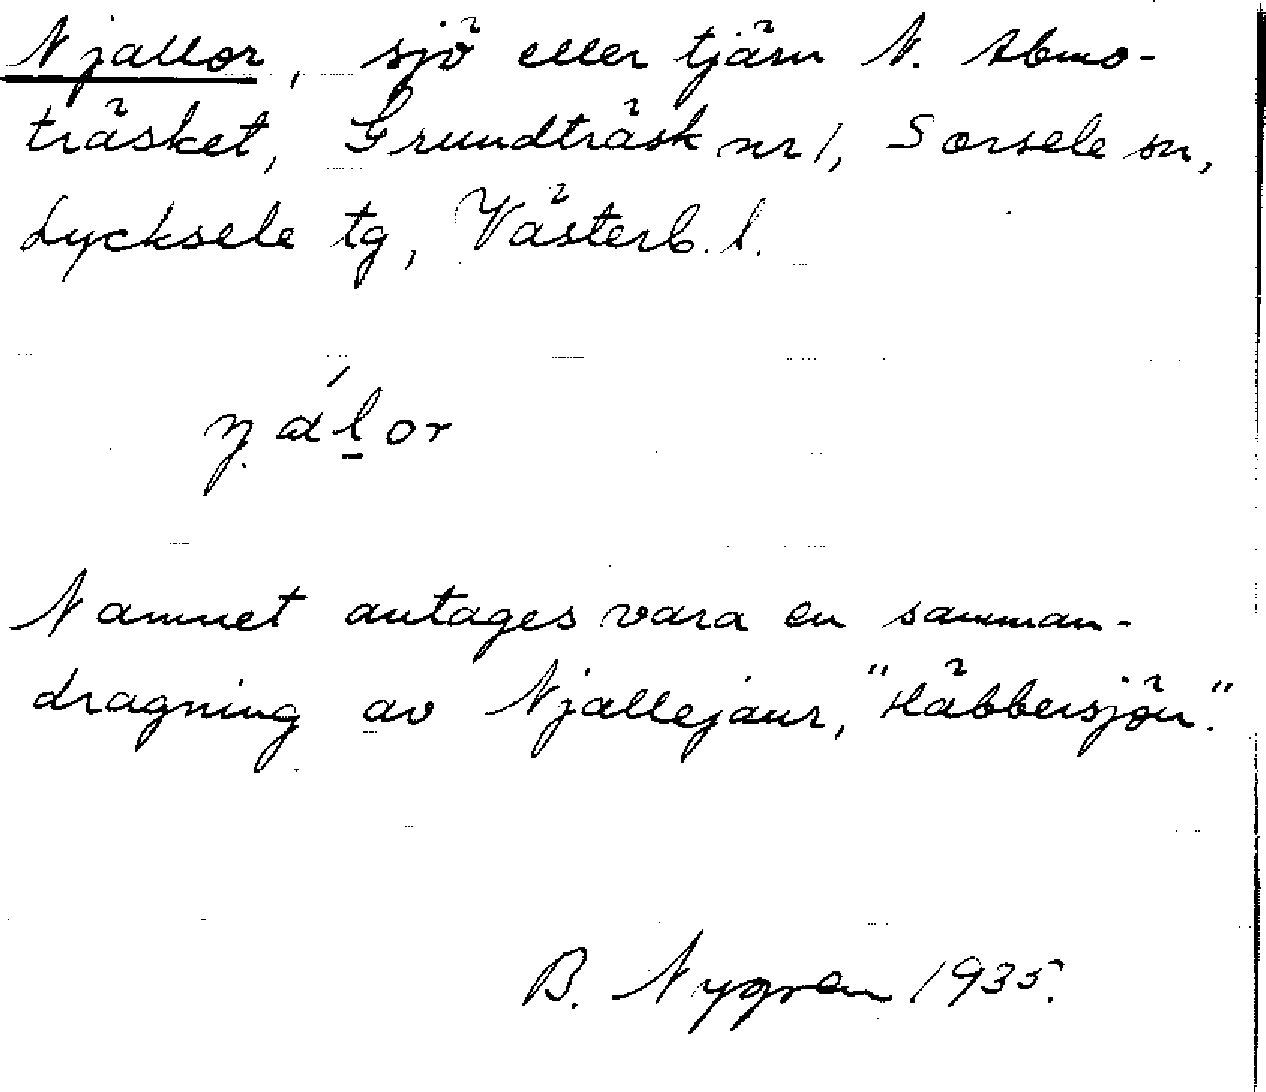 Njallor, sjö eller tjärn N. Abmo-
träsket, Grundträsk nr 1, Sorsele sn,
Lycksele tg, Västerb. l.
ŋál̠or
Namnet antages vara en samman-
dragning av Njallejaur, "Häbbersjön".
B. Nygren 1935.